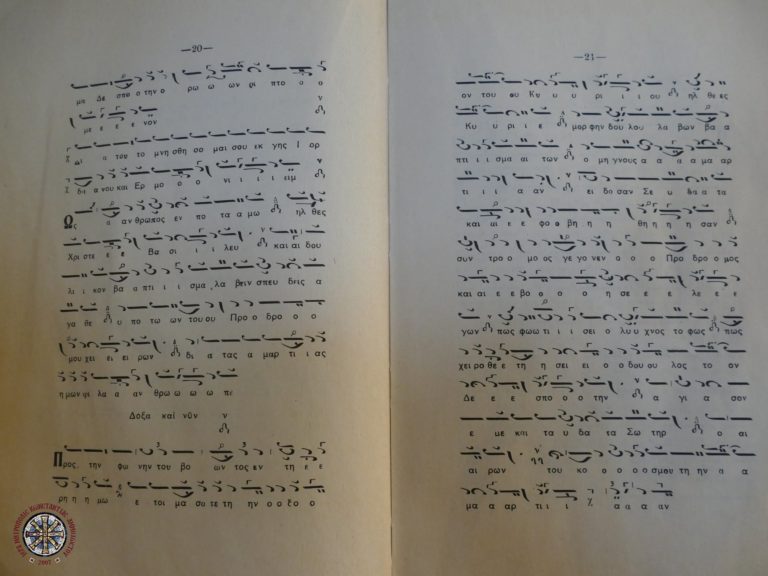 —20—
με Δε σπο την ο ρω ω ων ρι πτο ο ο
με ε ε νον
δι α του το μνησθη σο μαι σου εκ γης Ι ορ
δι α νου και Ερ μο ο ο νι ι ι ι ειμ
Ως α αν θρωπος εν πο τα α μω ηλ θες
Χρι στε ε ε Βα σι ι ι λευ ου και αι δου
λι κον βα α πτι ι ι σμα λα βειν σπευ δεις α
γα θε υ πο τω ων του ου Προ ο δρο ο ο
μου χει ει ει ρων δι α τας α μαρ τι ι ας
η μων φι λα α αν θρω ω ω ω πε
Δοξα καί νῦν
Προς την φω νην του βο ων τος εν τη ε ε
ρη η μω ε τοι μα σα τε τη ην ο ο δο ο
—21—
ον του ου Κυ υ υ ρι ι ι ου ηλ θε ες
Κυ υ ρι ι ε μορ φην δου λου λα βων βα α
πτι ι ι σμα αι των ο μη γνους α α α μα αρ
τι ι ι α αν ει δο σαν Σε υ δα α τα
και αι ε ε φο βη η η θη η η η σαν
συν τρο ο μος γε γο νεν α ο ο Προ δρο ο μος
και αι ε ε βο ο ο ο η σε ε ε λε ε ε
γων πως φω ω τι ι ι σει ο λυ υ χνος το φως πως
χει ρο θε ε τη η σει ει ο ο δου ου λος το ον
Δε ε ε σπο ο ο την α γι α σον
ε με και τα υ δα τα Σω τηρ ο αι
αι ρων του κο ο ο ο ο σμου τη ην α α
μα α αρ τι ι ι α α α αν
ΙΕΡΑ ΜΗΤΡΟΠΟΛΙΣ ΚΩΝΣΤΑΝΤΙΑΣ-ΑΜΜΟΧΩΣΤΟΥ
2007